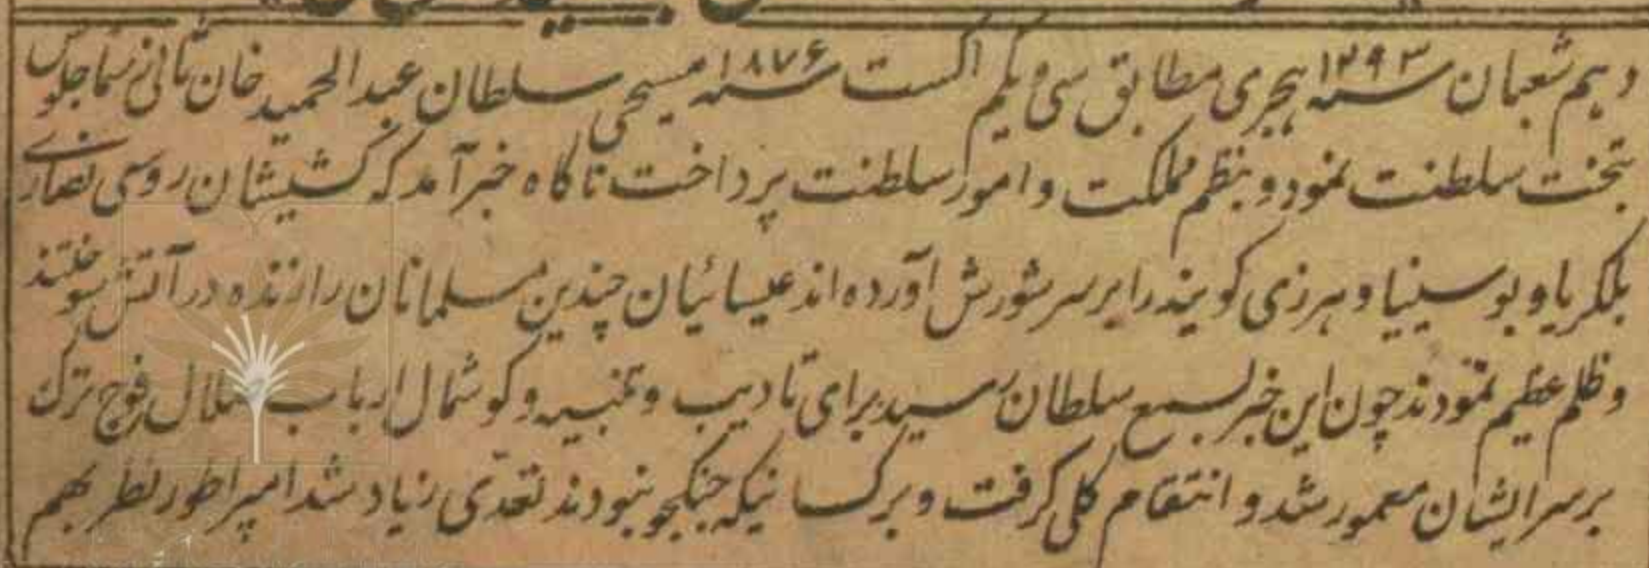 دهم شعبان سنه ۱۲۹۳ هجری مطابق سی و یکم اکست سنه ۱۸۷۶ مسیحی سلطان عبدالحمید خان ثانی جلوس
بتخت سلطنت نمود و بنظم مملکت و امور سلطنت پرداخت تا گاه خبر آمد که کشیشان روسی نصارے
بلکریا و بوسینیا و هرزی کوینه را بر سر شورش آورده اند عیسائیان چندین مسلمانان را زنده در آتش سوختند
و ظلم عظیم نمودند چون این خبر بسمع سلطان رسید برای تادیب و تنبیه و کوشمال ارباب ضلال فوج ترک
بر سر ایشان معمور شد و انتقام کلی گرفت و بر کسانیکه جنکجو نبودند تعدّی زیاد شد امپراطور نظر بهم